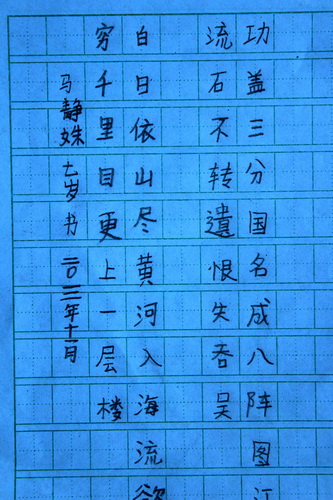 功盖三分国名成八阵图江
流石不转遺恨失吞吴
白日依山尽黄河入海流欲
穷千里目更上一层楼
马静姝 七岁书 二〇 年十一月